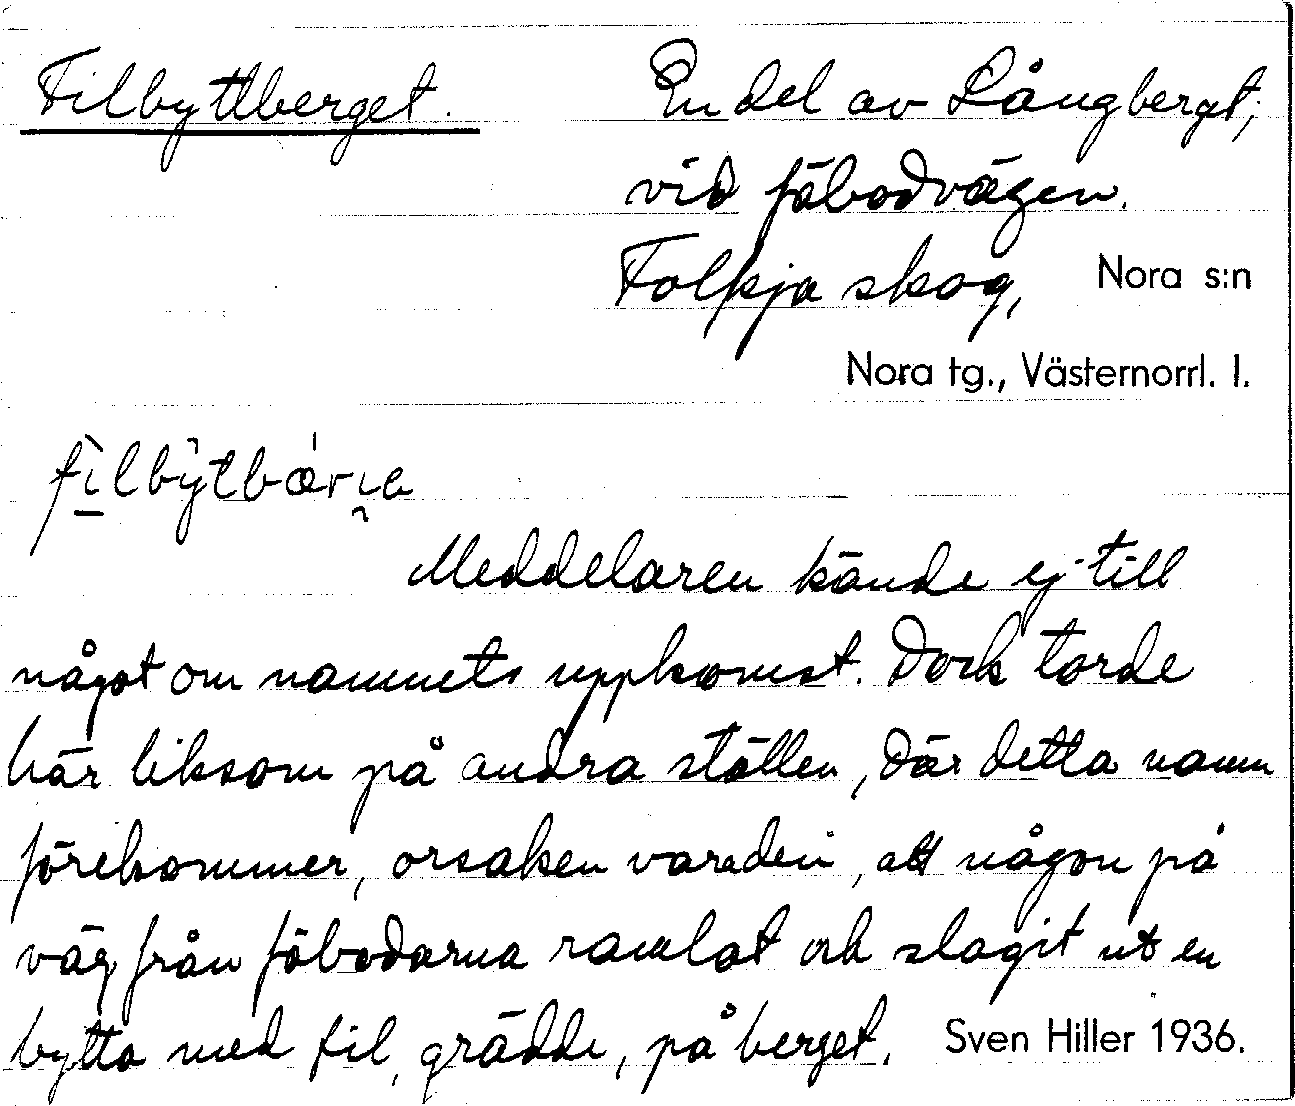 Filbyttberget. En del av Långberget,
vid fäbodvägen.
Folkja skog, Nora s:n
Nora tg., Västernorrl. l.
Meddelaren kände ej till
något om namnets uppkomst. Dock torde
här liksom på andra ställen, där detta namn
förekommer, orsaken vara den, att någon på
väg från fäbodarna ramlat och slagit ut en
bytta med fil, grädde, på berget. Sven Hiller 1936.